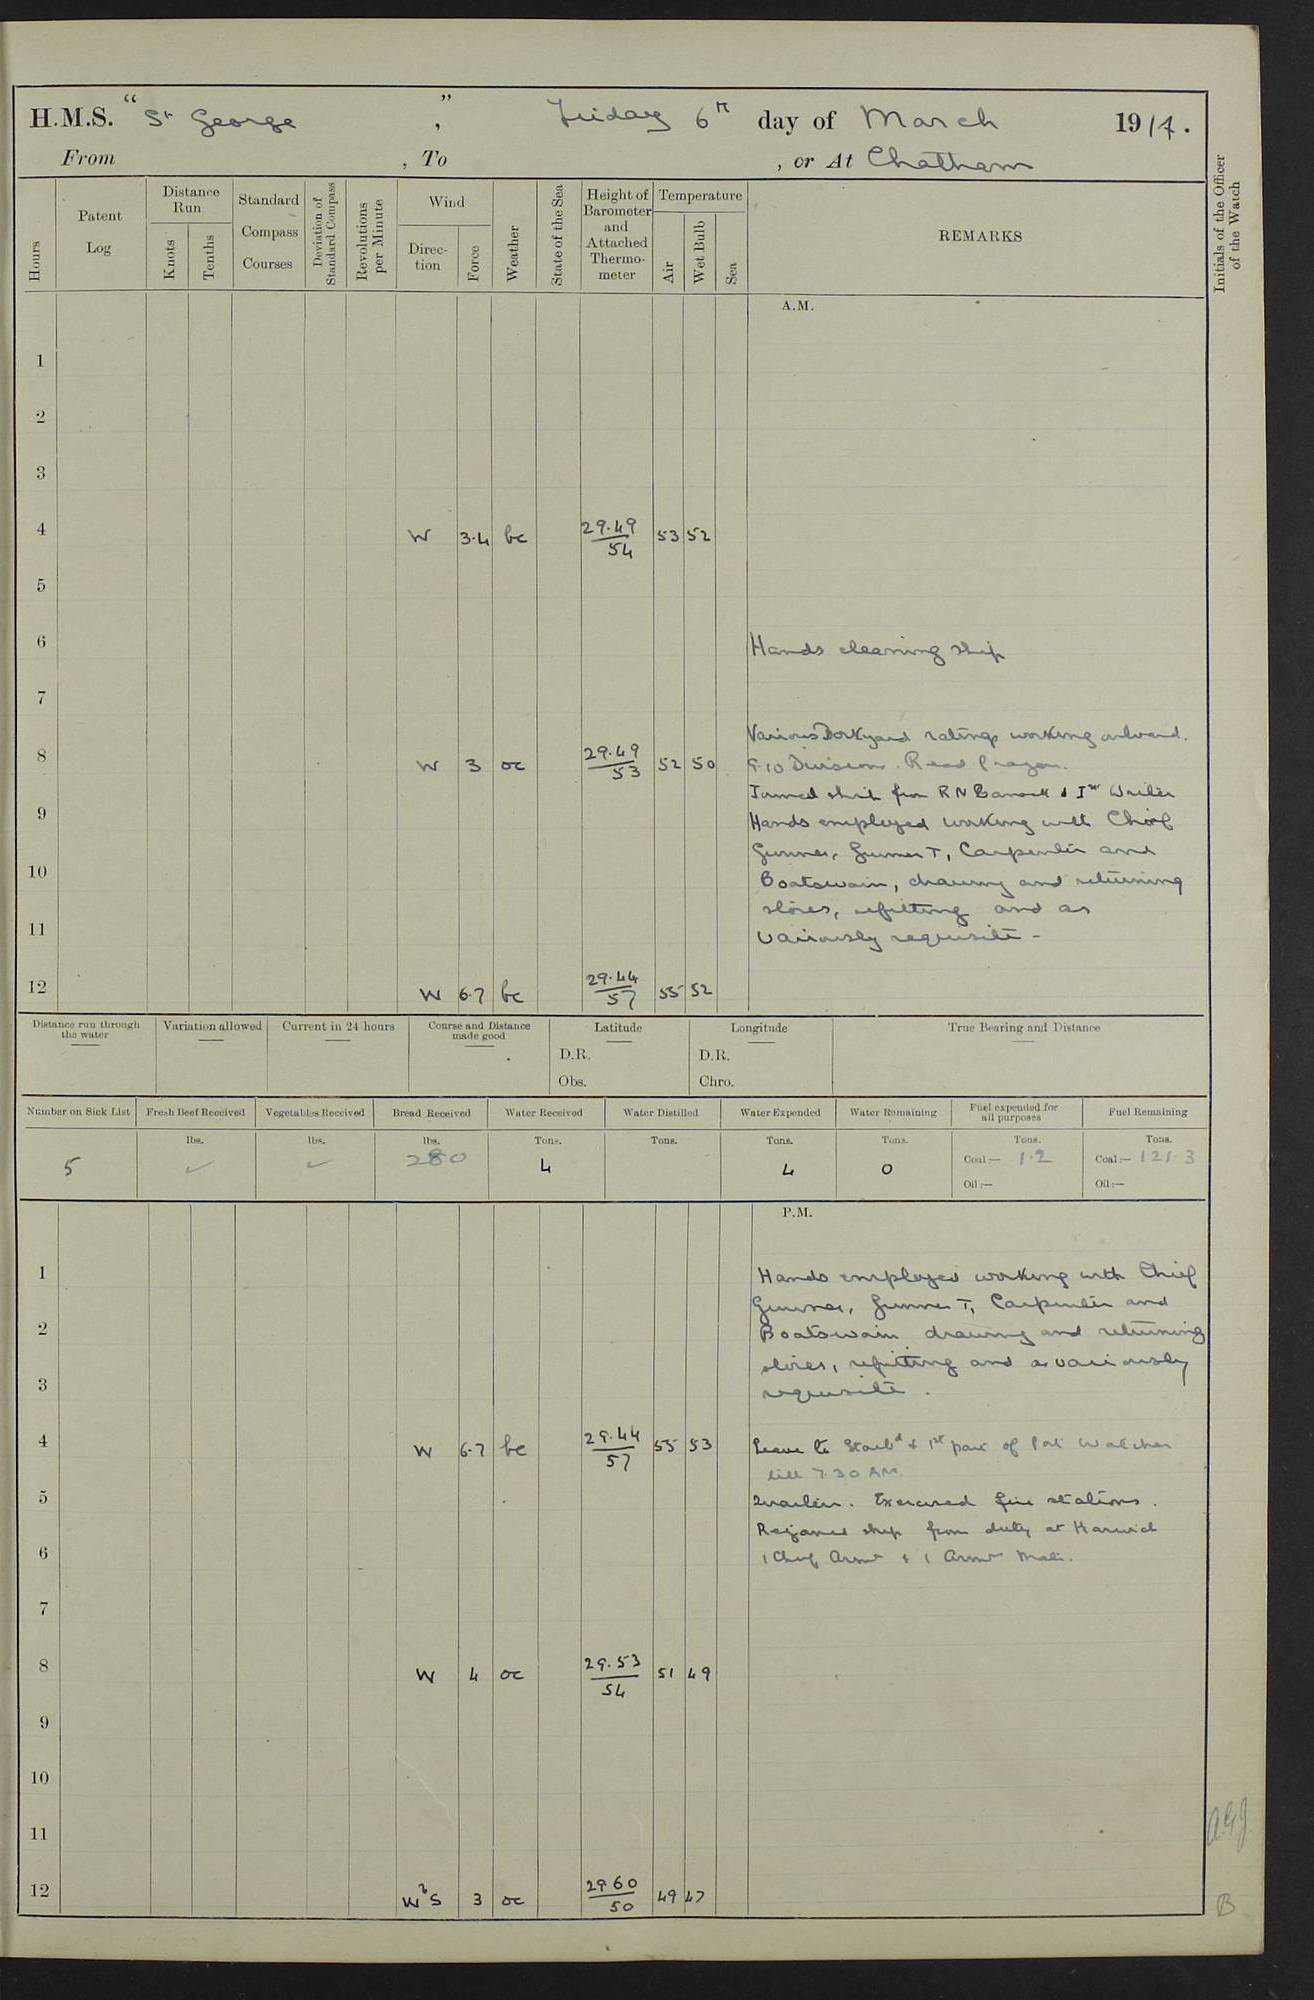 H.M.S. “St George”, Friday 6th day of March 1914.
From , To , or At Chatham
Hours
Patent Log
Distance Run
Knots
Tenths
Standard Compass Courses
Deviation of Standard Compass
Revolutions per Minute
Wind
Direc-tion
Force
Weather
State of the Sea
Height of Barometer and Attached Thermo-meter
Temperature
Air
Wet Bulb
Sea
REMARKS
Initials of the Officer of the Watch
A.M.
1
2
3
4 W 3.4 bc 29.49/54 53 52
5
6 Hands cleaning ship
7
Various Dockyard ratings working onboard.
8 W 3 oc 29.49/53 52 50
9.10 Divisions. Read Prayers.
Joined ship from RN Barracks 1 1st Writer
9 Hands employed working with Chief
Gunner, Gunner T, Carpenter and
10 Boatswain, drawing and returning
stores, refitting and as
11 variously requisite -
12 W 6.7 bc 29.44/57 55 52
Distance run through the water
Variation allowed
Current in 24 hours
Course and Distance made good
Latitude
D.R.
Obs.
Longitude
D.R.
Chro.
True Bearing and Distance
Number on Sick List
Fresh Beef Received
Vegetables Received
Bread Received
Water Received
Water Distilled
Water Expended
Water Remaining
Fuel expended for all purposes
Fuel Remaining
lbs. lbs. lbs. Tons. Tons. Tons. Tons. Tons. Tons.
5 ✓ ✓ 280 4 4 0 Coal:— 1.2 Coal:— 121.3
Oil:— Oil:—
P.M.
1 Hands employed working with Chief
Gunner, Gunner T, Carpenter and
2 Boatswain drawing and returning
stores, refitting and as variously
3 requisite.
4 W 6.7 bc 29.44/57 55 53 Leave to Starbd & 1st part of Port Watches
till 7.30 AM.
5 Quarters. Exercised fire stations.
Rejoined ship from duty at Harwich
6 1 Chief Armr & 1 Armr Mate.
7
8 W 4 oc 29.53/54 51 49
9
10
11
12 WbS 3 oc 29 60/50 49 47
B